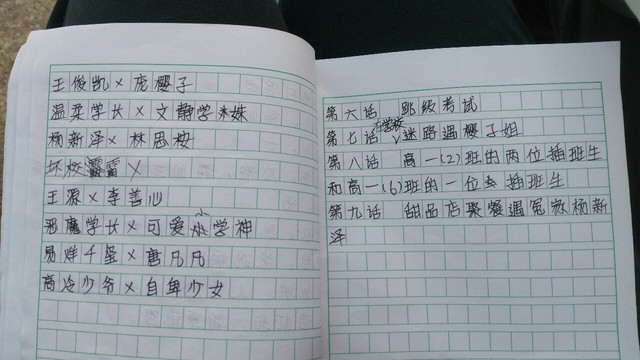 王俊凯×庞樱子
温柔学长×文静学妹
杨新泽×林思桉
坏校霸霸×
王源×李善心
恶魔学长×可爱小学神
易烊千玺×唐凡凡
高冷少爷×自卑少女
第六话 跳级考试
第七话 在学校迷路遇樱子姐
第八话 高一(2)班的两位插班生
和高一(6)班的一位插班生
第九话 甜品店聚餐遇冤家杨新
泽